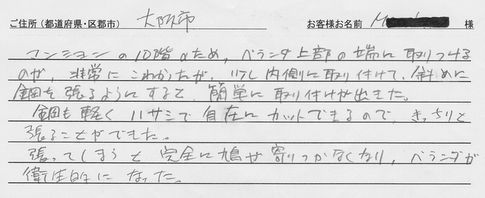 ご住所（都道府県・区郡市） 大阪市 お客様お名前 様
マンションの10階のため、ベランダ上部の端に取りつける
のが、非常にこわかったが、少し内側に取り付けて、斜めに
網を張るようにすると、簡単に取り付けが出来ました。
網も軽く ハサミで自在にカットできるので、きっちりと
張ることができました。
張ってしまうと完全に鳩が寄りつかなくなり、ベランダが
衛生的になった。